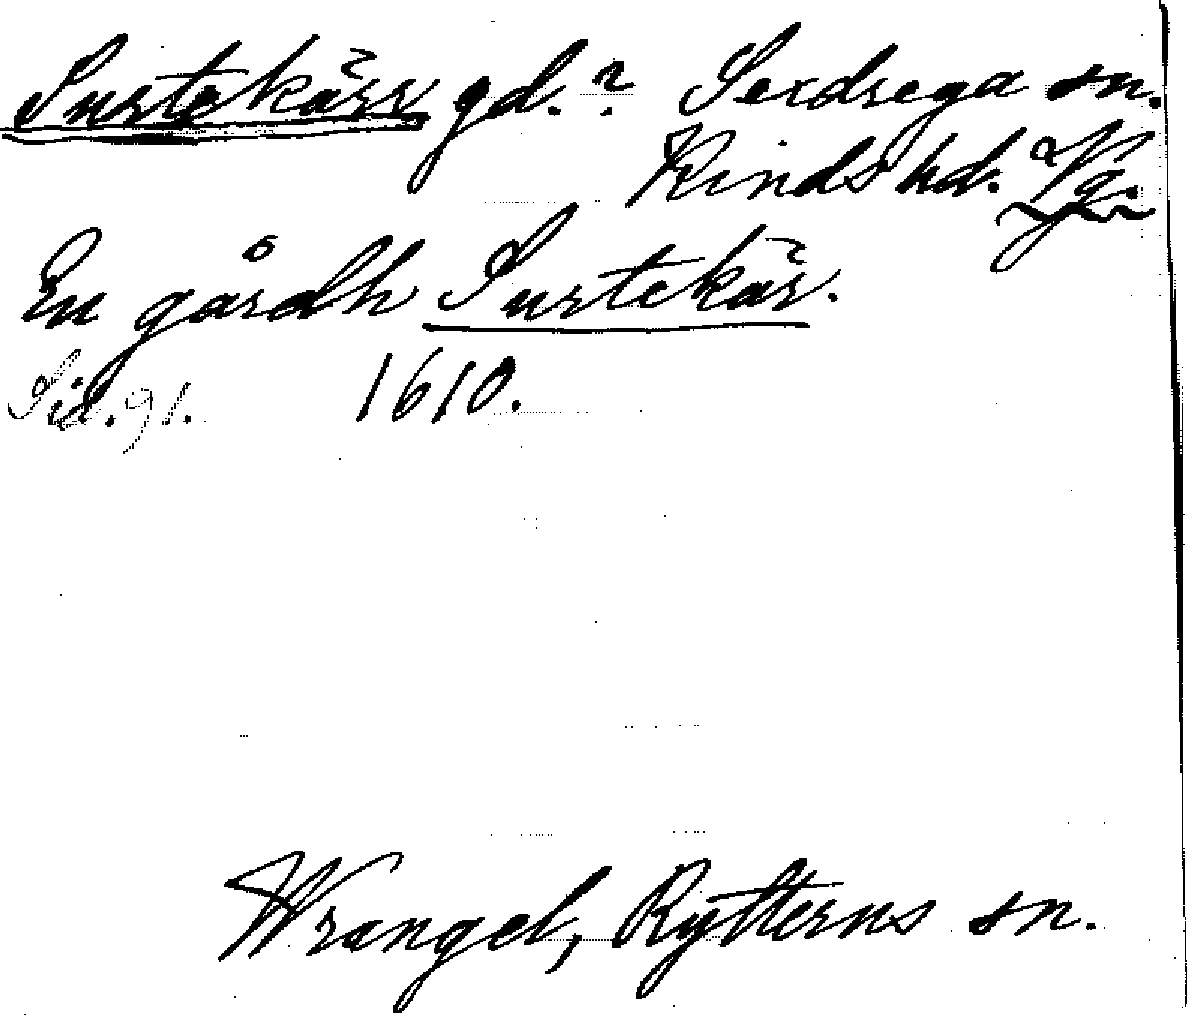 Surtekärr gd.? Sexdrega sn.
Kinds hd. Vg.
En gårdh Surtekär.
Sid. 91. 1610.
Wrangel, Rytterns sn.